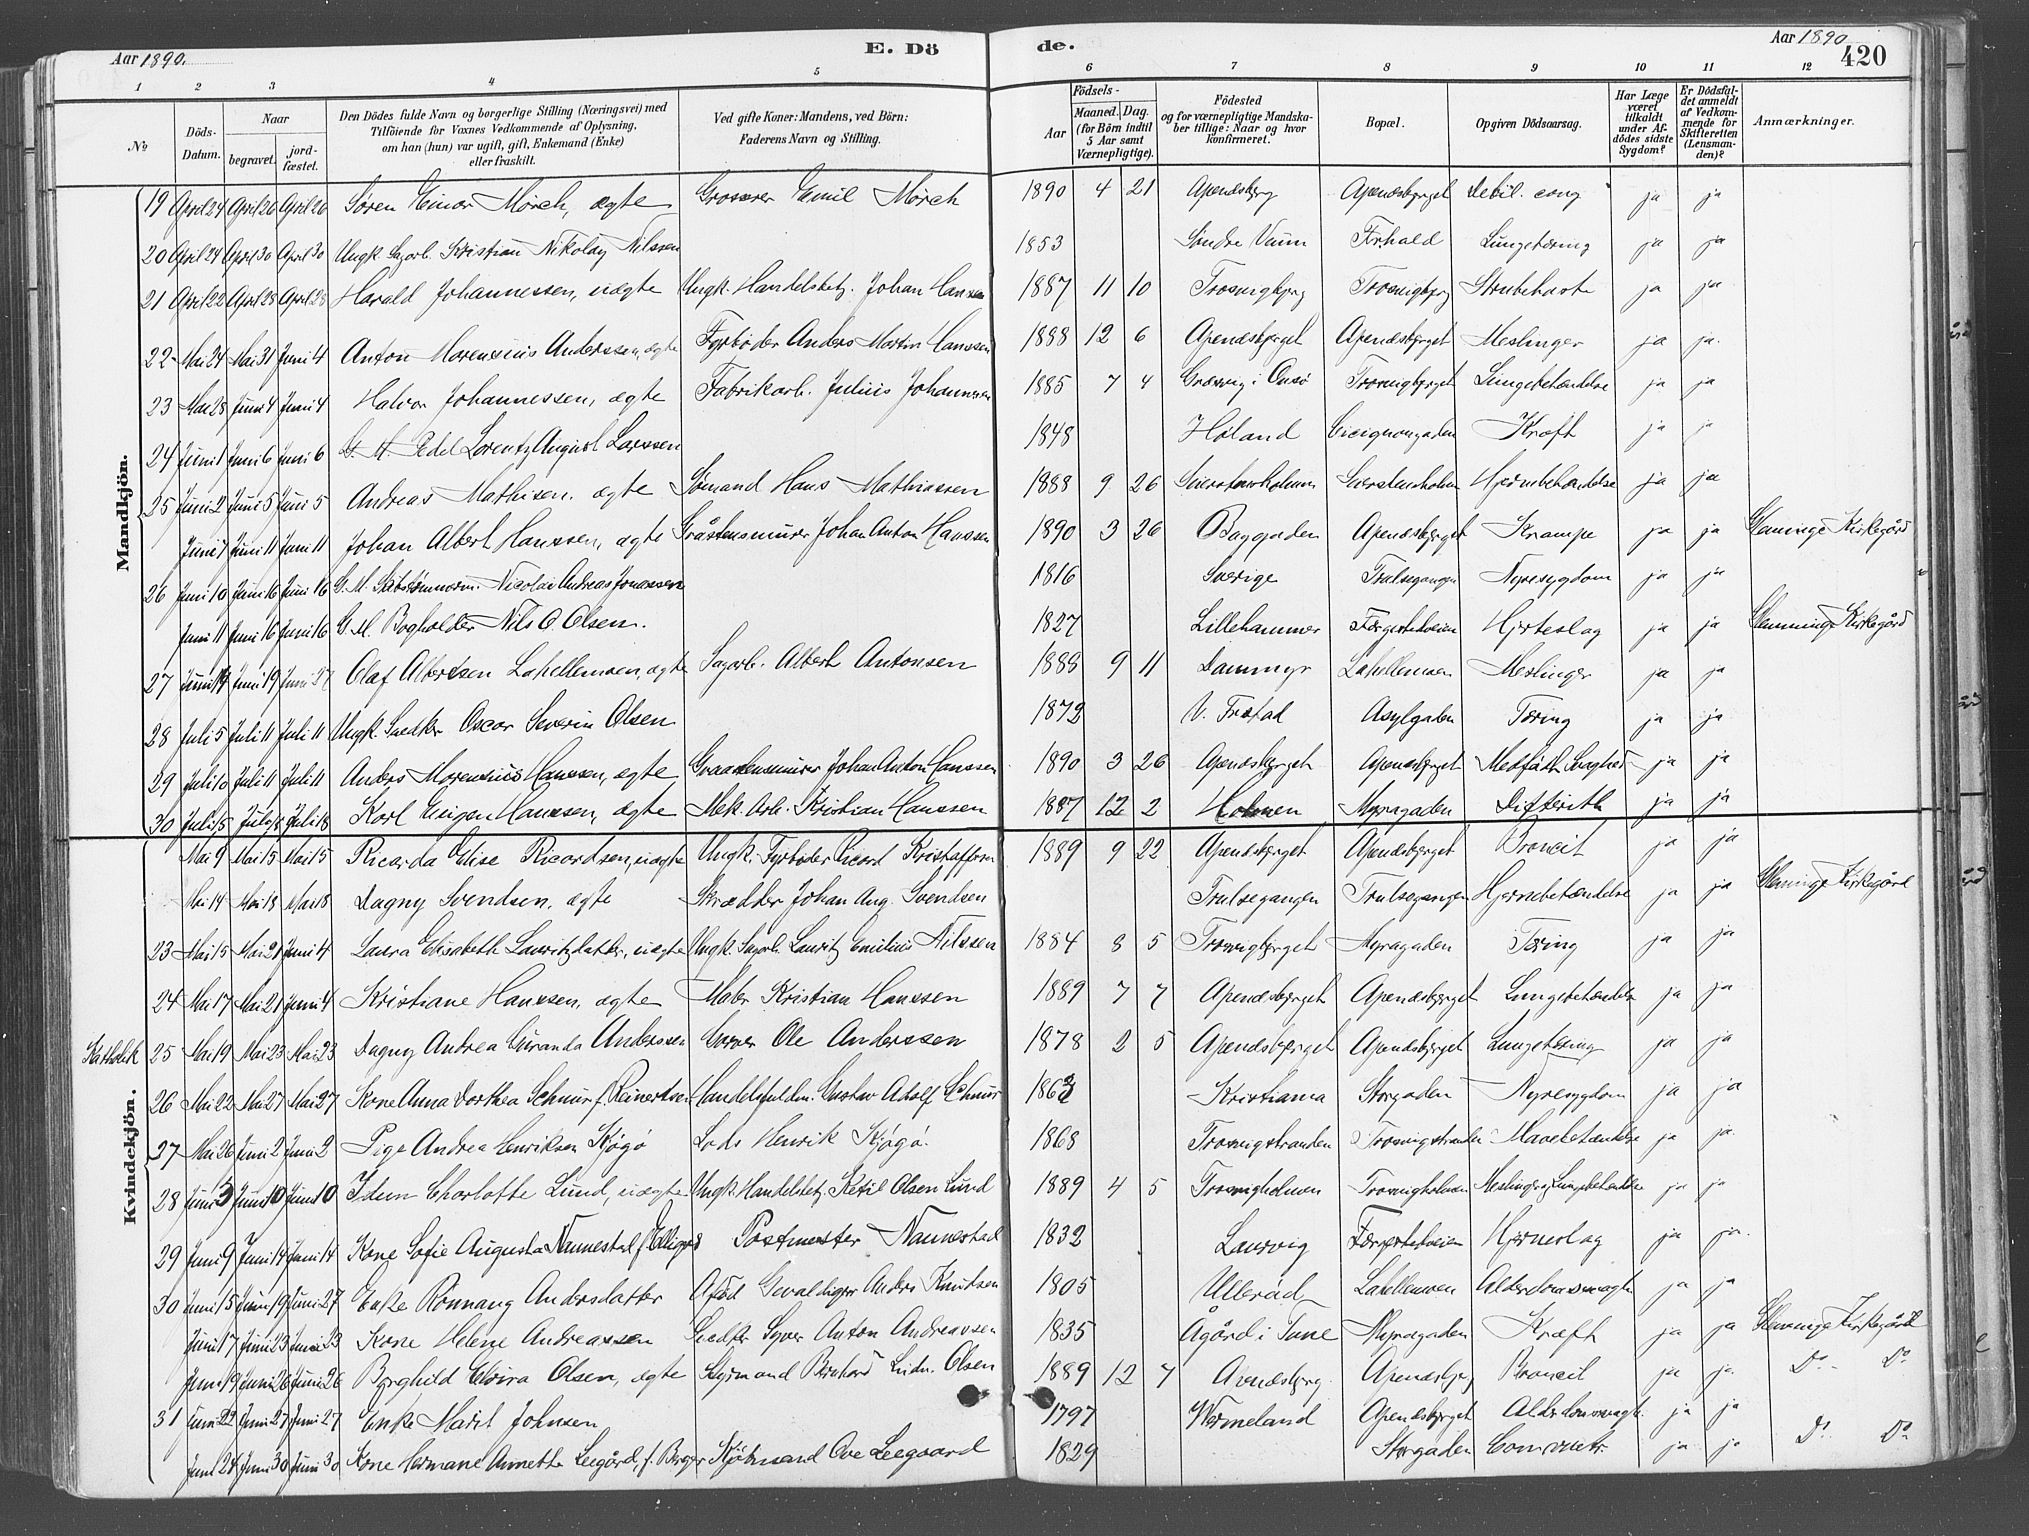 Aar 1890. E. Dö de. Aar 1890 420
1 2 3 4 5 6 7 8 9 10 11 12
No
Döds-Datum.
Naar
begravet. jordfæstet.
Den Dödes fulde Navn og borgerlige Stilling (Næringsvei) med
Tilföiende for Voxnes Vedkommende af Oplysning,
om han (hun) var ugift, gift, Enkemand (Enke)
eller fraskilt.
Ved gifte Koner: Mandens, ved Börn:
Faderens Navn og Stilling.
Födsels-
Aar Maaned. Dag.
(for Börn indtil
5 Aar samt
Værnepligtige).
Födested
og for værnepligtige Mandska-
ber tillige: Naar og hvor
konfirmeret.
Bopæl.
Opgiven Dödsaarsag.
Har Læge
været
tilkaldt
under Af-
dödes sidste
Sygdom?
Er Dödsfal-
det anmeldt
af Vedkom-
mende for
Skifteretten
(Lensman-
den)?
Anmærkninger.
Mandkjön.
19 April 24 April 26 April 26 Søren Einar Mörch, ægte Grosserer Emil Mörch 1890 4 21 Apenæsberg Apenæsbjerget Debil. cong ja ja
20 April 24 April 30 April 30 Ungk. Sagarb. Kristian Nikolay Nilssen 1853 Söndre Lungetæring ja ja
21 April 22 April 28 April 28 Harald Johannessen, uægte Ungk. Handelsbetj. Johan Hanssen 1887 11 10 Trosvigbjerg Trosvigbjerg Strubehoste ja ja
22 Mai 24 Mai 31 Juni 4 Anton Morensius Anderssen, ægte Fyrböder Anders Martin Hanssen 1888 12 6 Apenæsbjerget Apenæsbjerget Meslinger ja ja
23 Mai 28 Juni 4 Juni 4 Halvor Johannessen, ægte Fabrikarb. Julius Johannessen 1885 7 4 Græsvig i Onsö Trosvigbjerget Lungebetændelse ja ja
24 Juni 1 Juni 6 Juni 6 G. M. Pedel Lorentz August Larssen 1848 Höland Cicignongaden Kræft ja ja
25 Juni 2 Juni 5 Juni 5 Andreas Mathisen, ægte Sömand Hans Mathiassen 1888 9 26 Sverstensholmen Sverstensholm Hjernebetændelse ja ja
Juni 7 Juni 11 Juni 11 Johan Albert Hanssen, ægte Gråstensmurer Johan Anton Hanssen 1890 3 26 Baggaden Apenæsbjerget Krampe ja ja Glemminge Kirkegård
26 Juni 10 Juni 16 Juni 16 G. M. Skibstömmerm. Nicolai Andreas Jonassen 1816 Sverige Trulsegangen Nyresygdom ja ja
Juni 11 Juni 16 Juni 16 G. M. Bogholder Nils O. Olsen. 1827 Lillehammer Færgestedveien Hjerteslag ja ja Glemminge Kirkegård
27 Juni 14 Juni 19 Juni 27 Olaf Albertsen Lahellemoen, ægte Sagarb. Albert Antonsen 1888 9 11 Dammyr Lahellemoen Meslinger ja ja
28 Juli 5 Juli 11 Juli 11 Ungk. Snedker Oscar Severin Olsen 1872 V. Fredrikstad Asylgaden Tæring ja ja
29 Juli 10 Juli 11 Juli 11 Anders Morensius Hanssen, ægte Graastensmurer Johan Anton Hanssen 1890 3 26 Apenæsbjerget Apenæsbjerget Medfödt Svaghed ja ja
30 Juli 15 Juli 18 Juli 18 Karl Eugen Hanssen, ægte Mek. Arb. Kristian Hanssen 1887 12 2 Holmen Myragaden Difterith ja ja
Kvindekjön.
Mai 9 Mai 15 Mai 15 Ricarda Elise Ricardsen, uægte Ungk. Fyrböder Ricard Kristoffersen 1889 9 22 Apenæsbjerget Apenæsbjerget Broncit ja ja
Mai 14 Mai 18 Mai 18 Dagny Svendsen, ægte Skrædder Johan Aug. Svendsen Trulsegangen Trulsegangen Hjernebetændelse ja ja Glemminge Kirkegård
23 Mai 15 Mai 21 Juni 4 Laura Elisabeth Lauritzdatter, uægte Ungk. Sagarb. Lauritz Emilius Nilssen 1884 8 5 Trosvigbjerget Myragaden Tæring ja ja
24 Mai 17 Mai 21 Juni 4 Kristiane Hanssen, ægte Maler Kristian Hanssen 1889 7 7 Apenæsbjerget Apenæsbjerget Lungebetændelse ja ja
Katholik 25 Mai 19 Mai 23 Mai 23 Dagny Andrea Anderssen Garver Ole Anderssen 1878 2 5 Apenæsbjerget Apenæsbjerget Lungetæring ja ja
26 Mai 22 Mai 27 Mai 27 Kone Anna Dorthea Schnur f. Reinertsen Handelsfuldm. Gustav Adolf Schnur Kristiania Storgaden Nyresygdom ja ja
27 Mai 26 Juni 2 Juni 2 Pige Andrea Henriksen Kjögö Lods Henrik Kjögö. 1868 Trosvigstranden Trosvigstranden Mavebetændelse ja ja
28 Juni 3 Juni 10 Juni 10 Idun Charlotte Lund, uægte Ungk. Handelsbetj. Ketil Olsen Lund 1889 4 5 Trosvigholmen Trosvigholmen Meslinger og Lungebetændelse ja ja
29 Juni 9 Juni 14 Juni 14 Kone Sofie Augusta Nannestad f. Postmester Nannestad 1832 Laurvig Færgestedveien Hjerneslag ja ja
30 Juni 15 Juni 19 Juni 27 Enke Rönnaug Andersdatter Aföd Gevaldiger Anders Knudsen 1805 Ulleröd Lahellemoen Alderdomssvaghed ja ja
Juni 17 Juni 23 Juni 23 Kone Helene Andreassen Snedker Syver Anton Andreassen 1835 Ågård i Tune Myragaden Kræft ja ja Glemminge Kirkegård
Juni 19 Juni 26 Juni 26 Borghild Elvira Olsen, ægte Styrmand Bernhard Ludv. Olsen 1889 12 7 Apenæsberg. Apenæsbjerg Broncit ja ja. Do Do
31 Juni 22 Juni 27 Juni 27 Enke Marit Johnsen 1797 Wermeland Apenæsbjerget Alderdomssvagh. ja ja
Juni 24 Juni 30 Juni 30 Kone Hermane Annette Leegård, f. Berger Kjöbmand Ove Leegaard 1829 Storgaden ja ja Do Do